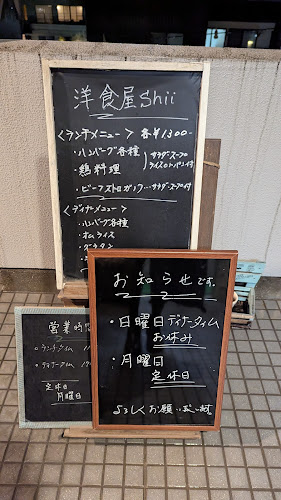 洋食屋Shii
<ランチメニュー> 各¥1300-
・ハンバーグ各種
・鶏料理
サラダ・スープ
ライスorパン付
・ビーフストロガノフ…サラダ・スープ付
<ディナーメニュー>
・ハンバーグ各種
・オムライス
・グラタン
お知らせです。
・日曜日ディナータイム
お休み
・月曜日
定休日
よろしくお願い致します。
営業時間
・ランチタイム
・ディナータイム
定休日
月曜日